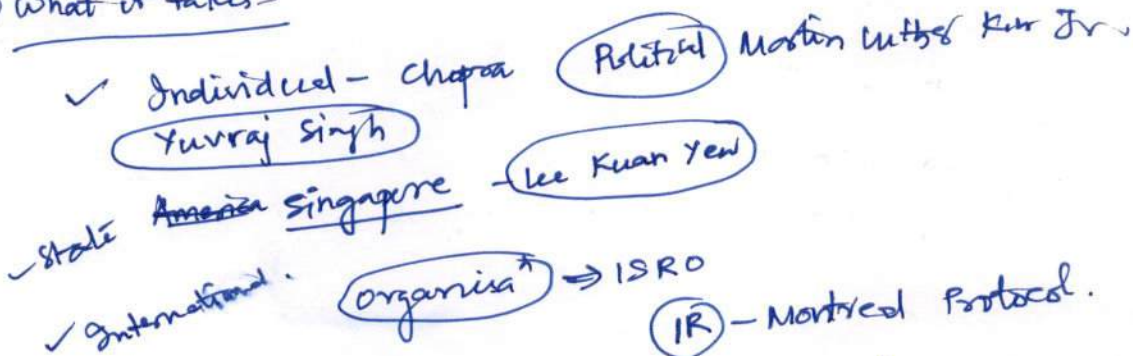 What it takes
✓ Individual - Chopra Political Martin Luther King Jr.
Yuvraj Singh
✓ State America Singapore - Lee Kuan Yew
✓ International. Organisaⁿ ⇒ ISRO
IR - Montreal Protocol.